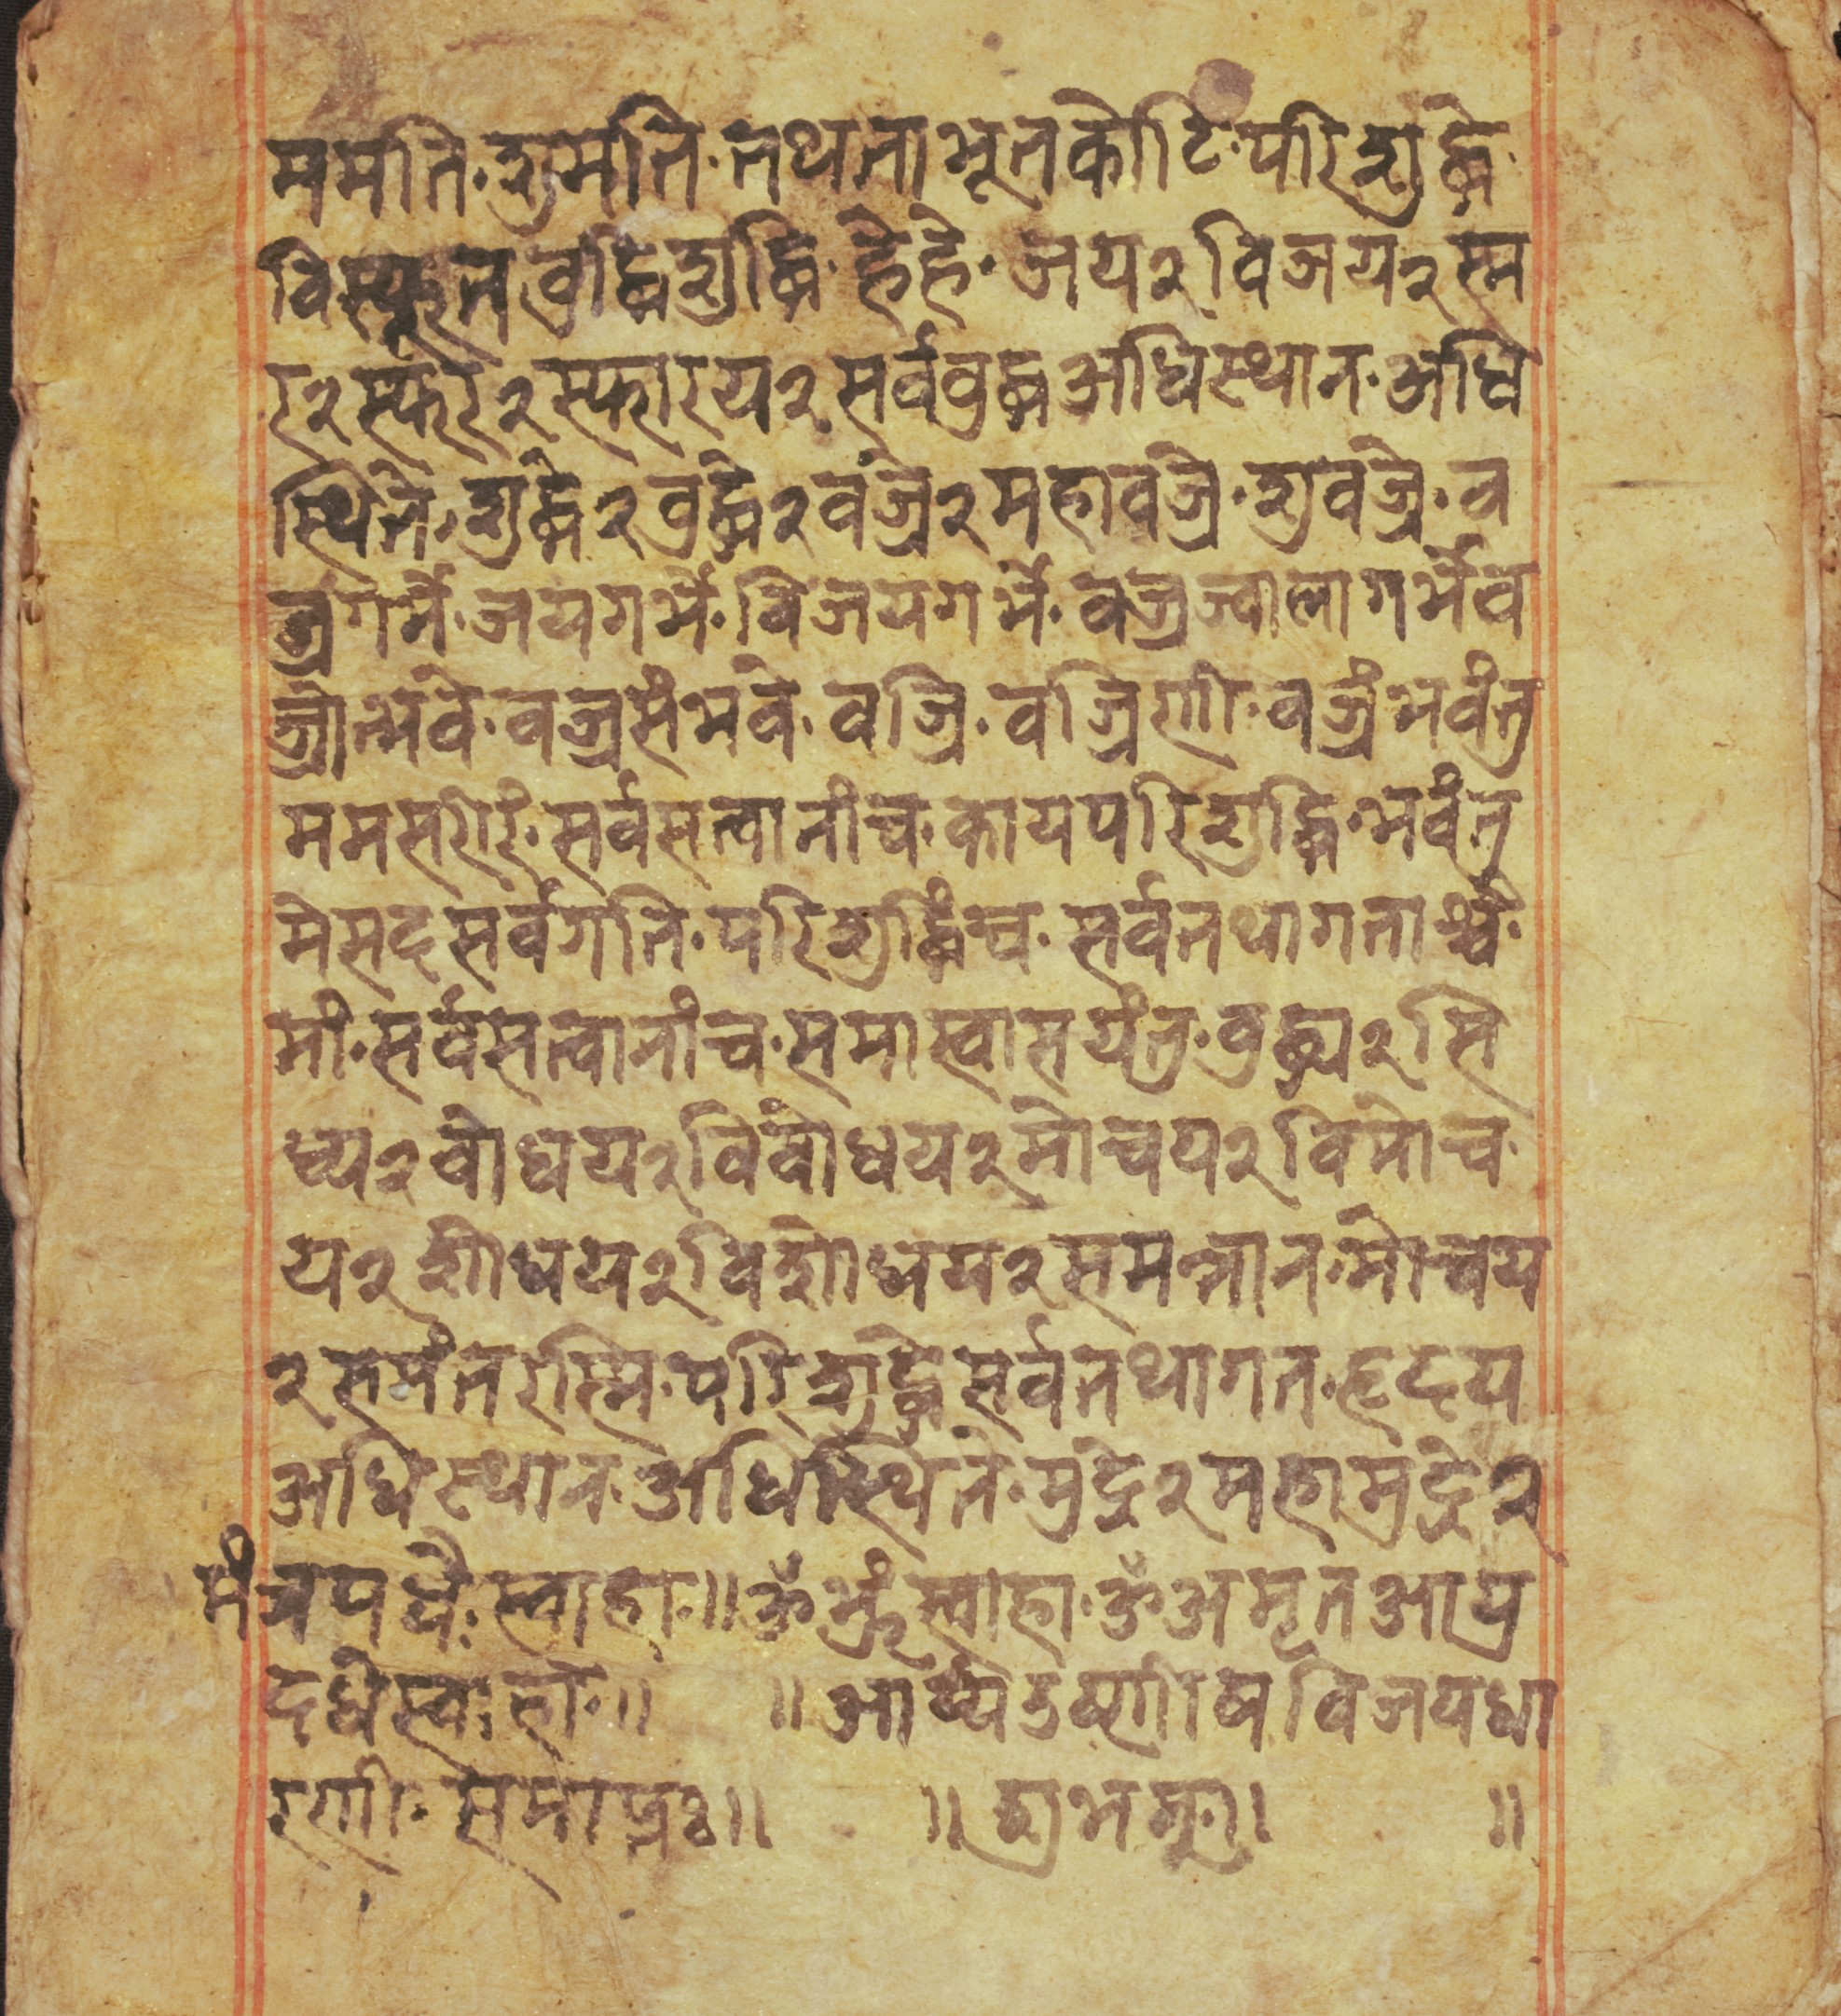 ममति·शुमति·तथताभूतकोटि·परिशुद्धे·
विस्फूत वुद्धिशुद्धि·हेहे·जय२विजय२स्म
र२स्फर२स्फारय२सर्ववुद्ध अधिस्थान·अधि
स्थिते·शुद्धे२वुद्धे२वज्रे२महावज्रे·शुवज्रे·व
ज्रगर्भे·जयगर्भे·विजयगर्भे·वज्रज्वालागर्भेव
ज्रोत्भवे·वज्रसंभवे·वज्रि·वज्रिणी·वज्रंभवंतु
ममसरीरं·सर्वसत्वानांच·कायपरिशुद्धि·भवंतु
मेसद्सर्वगति·परिशुद्धिंच·सर्वतथागताश्च·
मां·सर्वसत्वानांच·समास्वासयंतु·वुद्ध्य२सि
ध्य२वोधय२विवोधय२मोचय२विमोच
य२शोधय२विशोधय२समन्तान·मोचय
२समंतरस्मि·परिशुद्धेसर्वतथागत·हृदय
अधिस्थान·अधिस्थिते·मुद्रे२महामुद्रे२
मंत्रपधैः स्वाहा·॥ॐभ्रूं स्वाहा·ॐअमृतआप्र
दधेस्वाहा·॥ ॥आर्य्यउष्णीषविजयधा
रणी·समाप्तः॥ ॥शुभम्। ॥